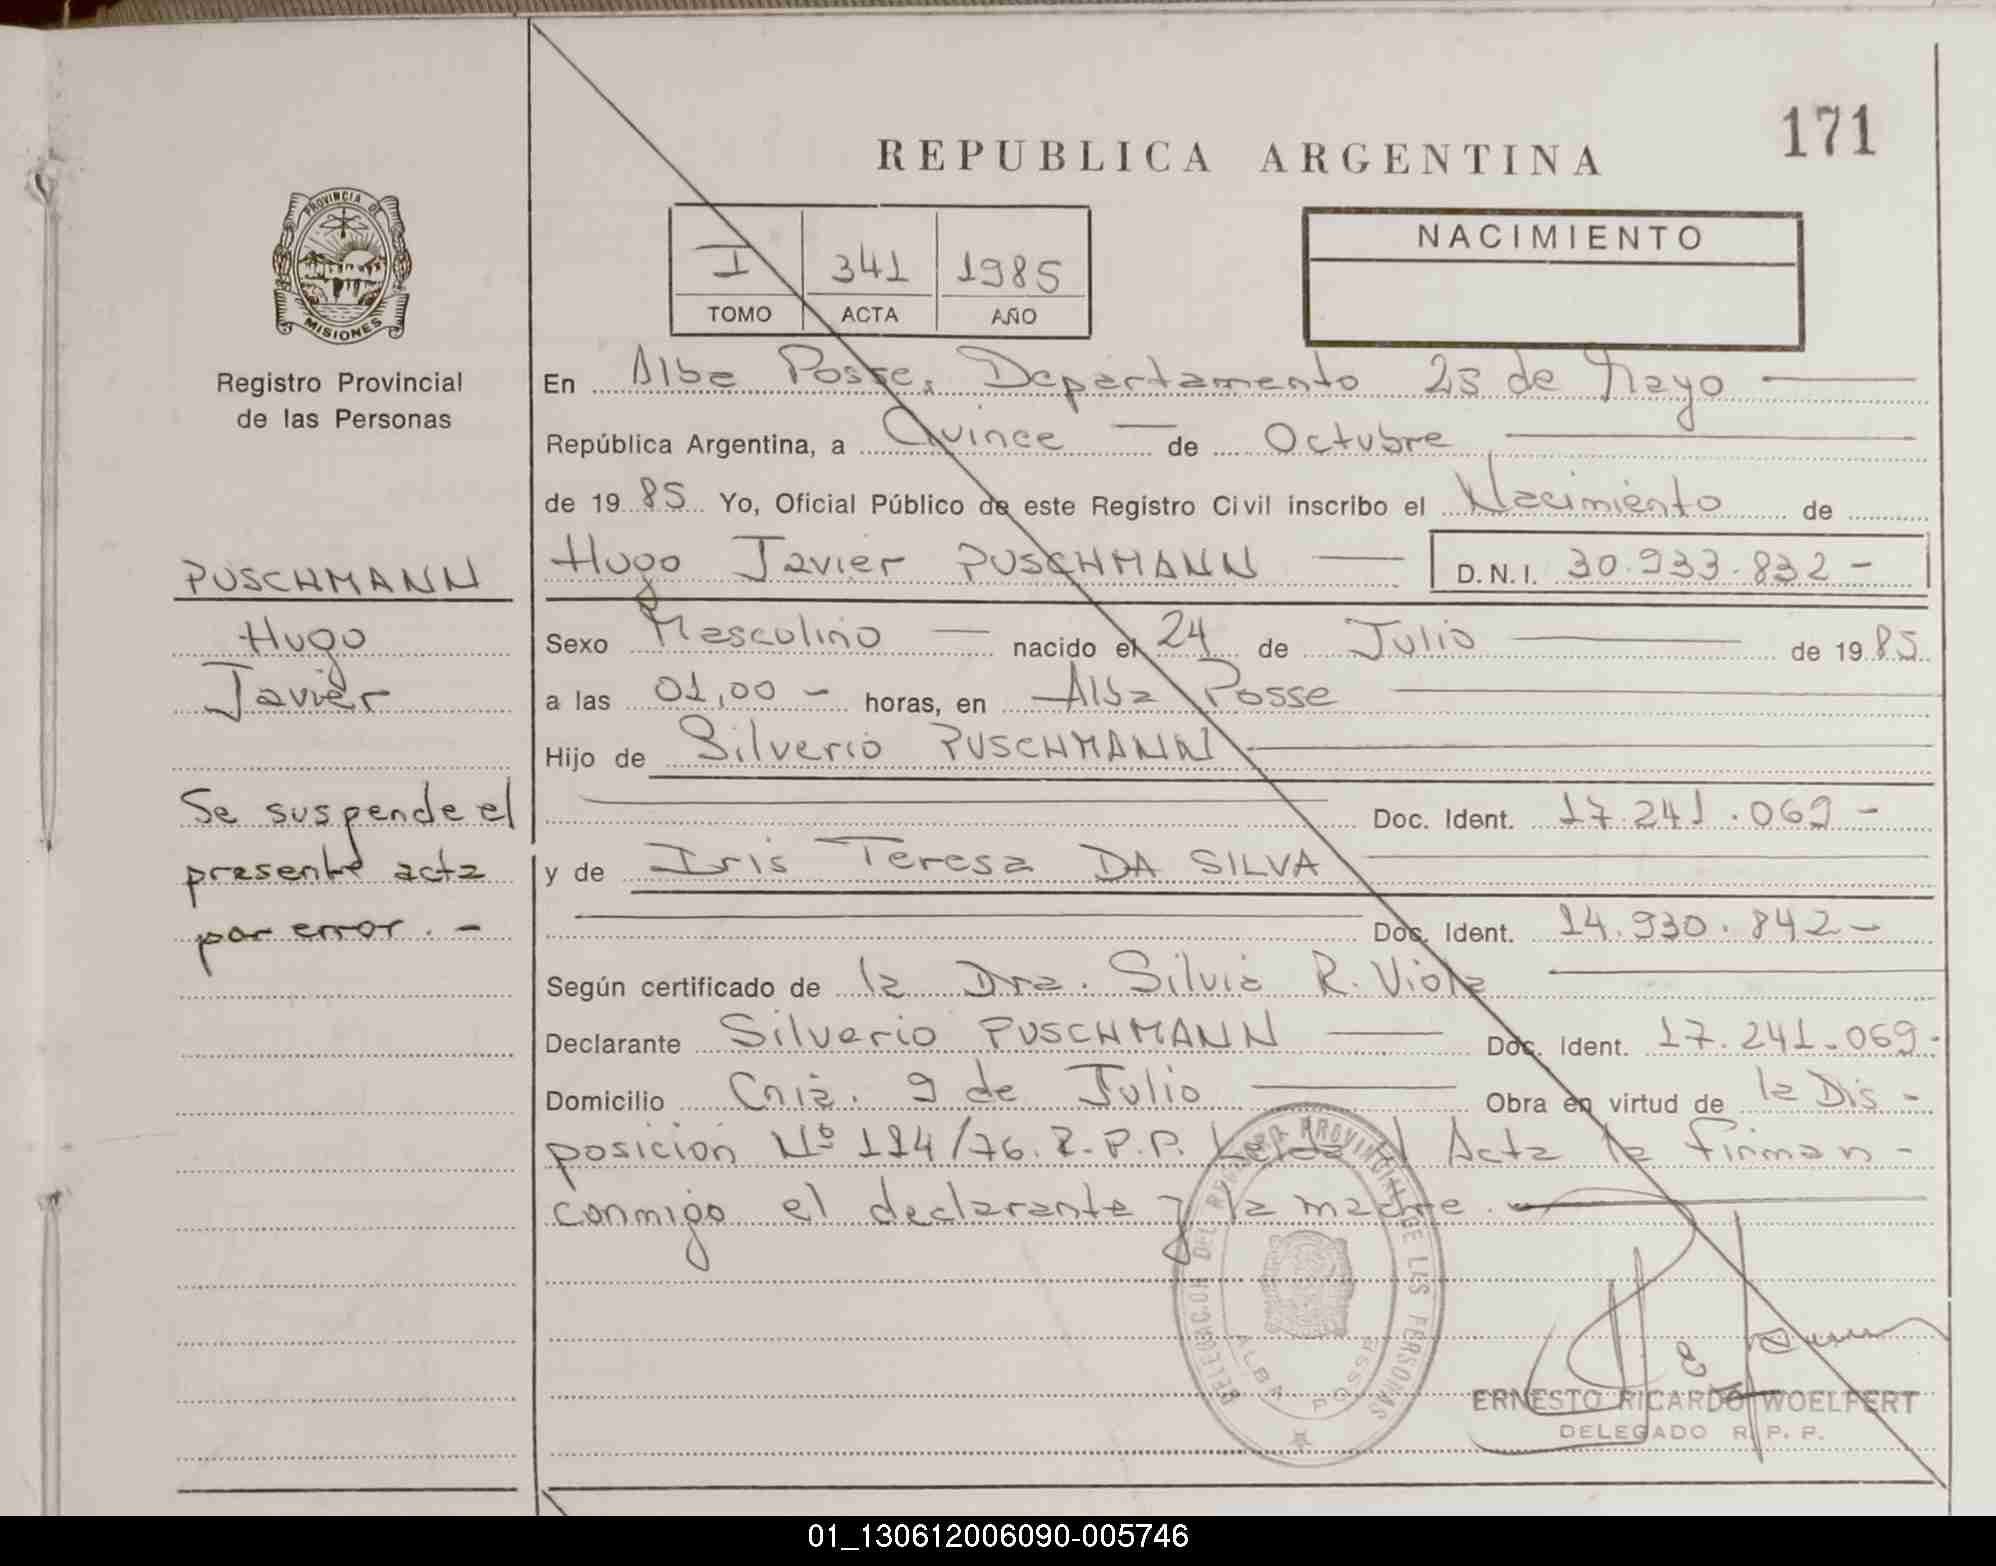 171
REPUBLICA ARGENTINA
PROVINCIA DE
MISIONES
Registro Provincial
de las Personas
I 341 1985
TOMO ACTA AÑO
NACIMIENTO
En Alba Posse, Departamento 25 de Mayo
República Argentina, a Quince de Octubre
de 1985 Yo, Oficial Público de este Registro Civil inscribo el Nacimiento de
Hugo Javier PUSCHMANN D.N.I. 30.933.832-
Sexo Masculino nacido el 24 de Julio de 1985
a las 01,00 - horas, en Alba Posse
Hijo de Silverio PUSCHMANN
Doc. Ident. 17.241.069-
y de Iris Teresa DA SILVA
Doc. Ident. 14.930.842-
Según certificado de la Dra. Silvia R. Viola
Declarante Silverio PUSCHMANN Doc. Ident. 17.241.069-
Domicilio Cnia. 9 de Julio Obra en virtud de la Dis-
posición Nº 114/76. R.P.P. Leida el Acta la firman-
conmigo el declarante y la madre.
PUSCHMANN
Hugo
Javier
Se suspende el
presente acta
por error. -
DELEGACION DEL REGISTRO PROVINCIAL DE LAS PERSONAS
ALBA POSSE
ERNESTO RICARDO WOELFERT
DELEGADO R. P. P.
01_130612006090-005746